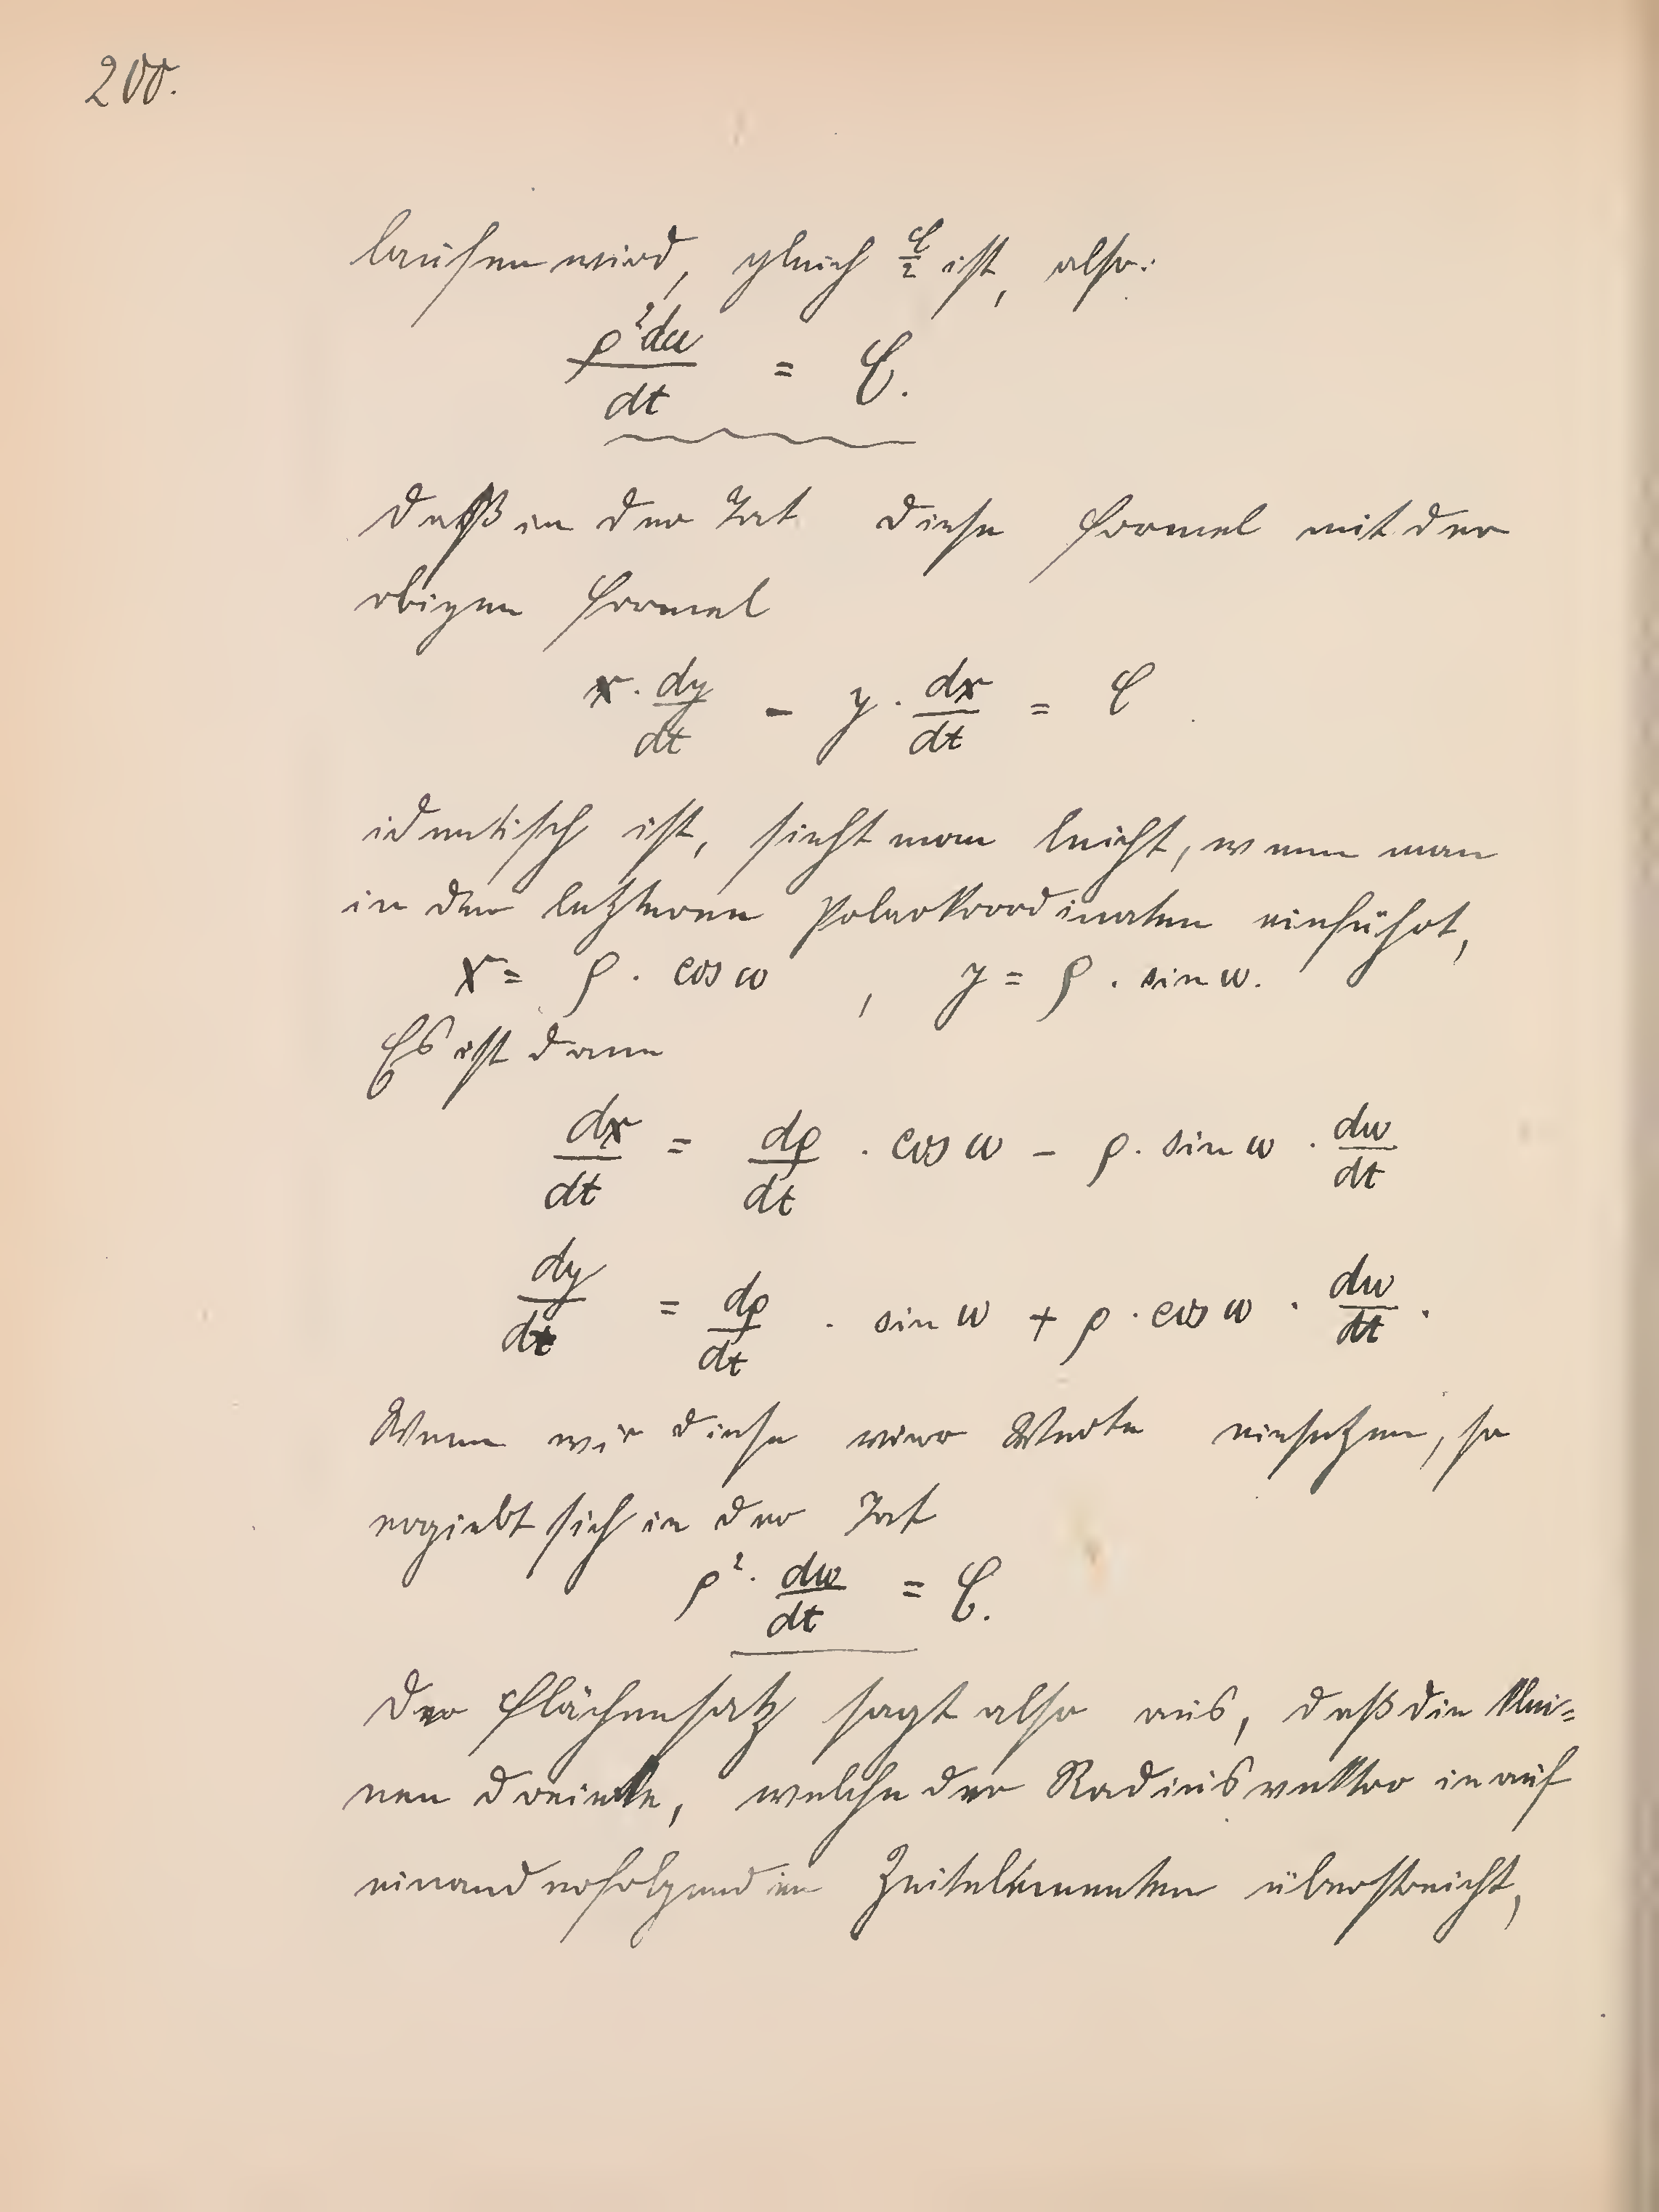 200.
laufen wird, gleich C/2 ist, also:
ρ² dω / dt = C.
Daß in der Tat diese Formel mit der
obigen Formel
x · dy/dt - y · dx/dt = C
identisch ist, sieht man leicht, wenn man
in der letzteren Polarkoordinaten einführt,
x = ρ · cos ω , y = ρ · sin ω.
Es ist dann
dx/dt = dρ/dt · cos ω - ρ · sin ω · dω/dt
dy/dt = dρ/dt · sin ω + ρ · cos ω · dω/dt.
Wenn wir diese vier Werte einsetzen, so
ergiebt sich in der Tat
ρ² · dω/dt = C.
Der Flächensatz sagt also aus, daß die klei=
nen Dreiecke, welche der Radiusvektor in auf
einanderfolgenden Zeitelementen überstreicht,